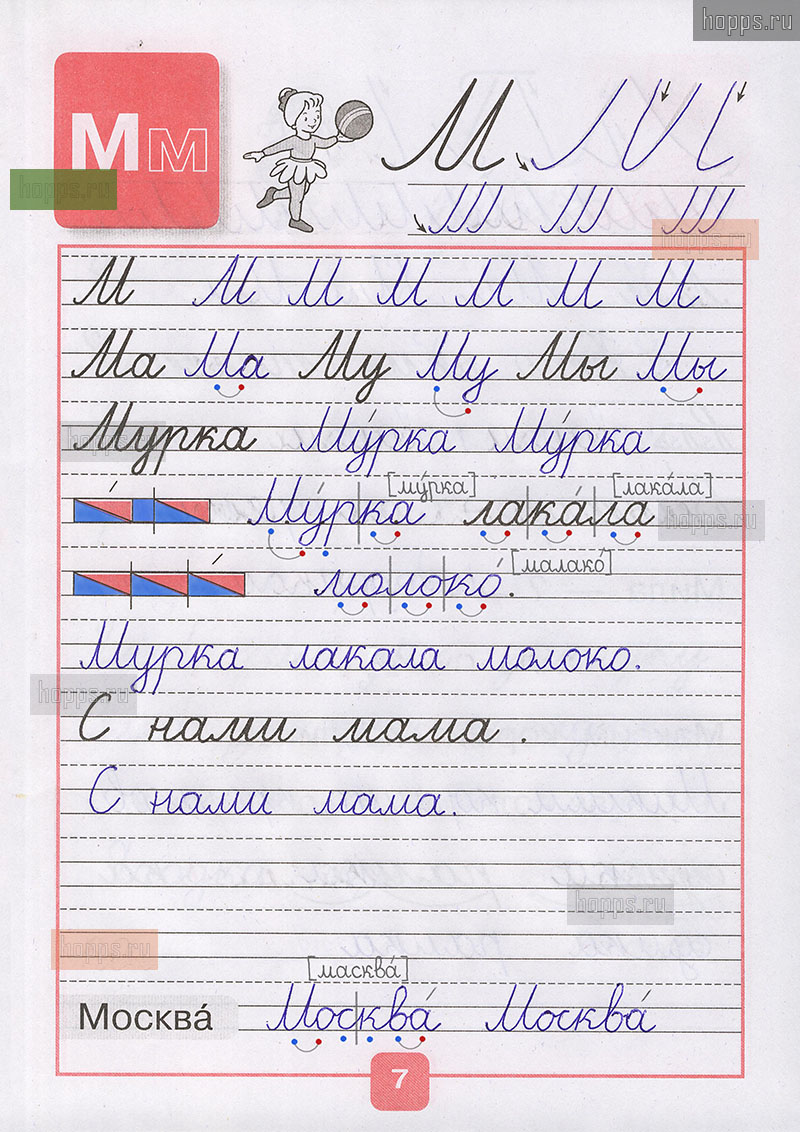 hopps.ru
М м
М
hopps.ru
hopps.ru
М М М М М М М
Ма Ма Му Му Мы Мы
Мурка Му́рка Му́рка
[му́рка] [лака́ла]
Му́рка лака́ла
hopps.ru
[малако́]
молоко́.
Мурка лакала молоко.
hopps.ru
С нами мама.
С нами мама.
hopps.ru
hopps.ru
[масква́]
Москва́ Москва́ Москва́
7